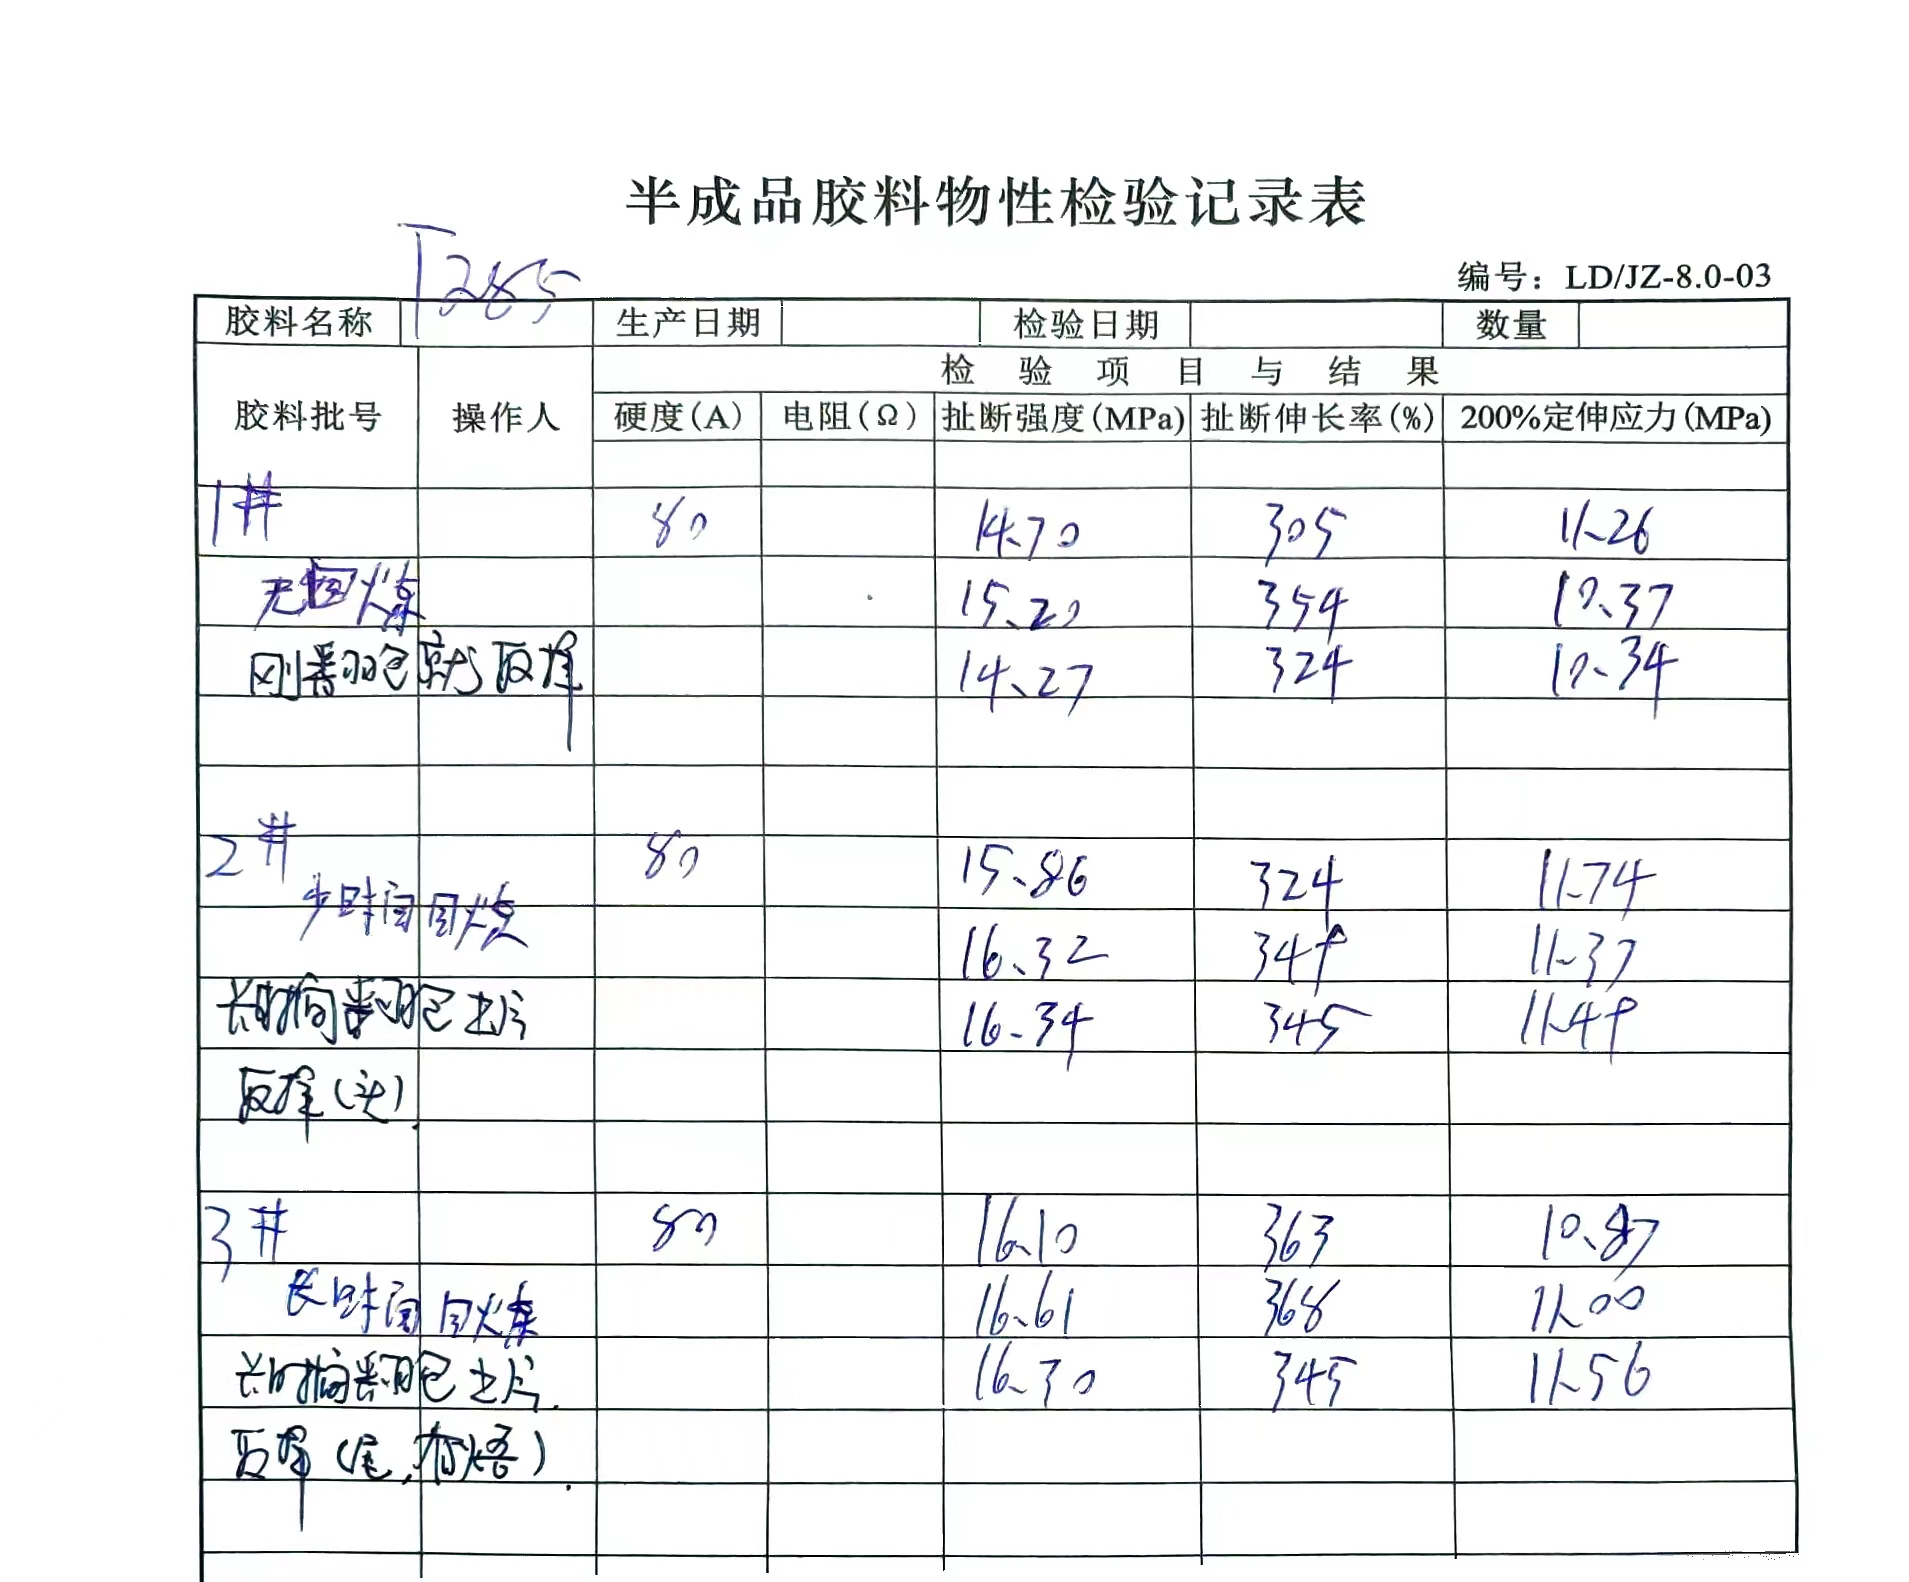 半成品胶料物性检验记录表
编号：LD/JZ-8.0-03
胶料名称 T285 生产日期 检验日期 数量
检验项目与结果
胶料批号 操作人 硬度(A) 电阻(Ω) 扯断强度(MPa) 扯断伸长率(%) 200%定伸应力(MPa)
1# 80 14.70 305 11.26
无回炼 15.20 354 10.37
刚翻包就取样 14.27 324 10.34
2# 80 15.86 324 11.74
少时间回炼 16.32 349 11.37
长时间翻包出片 16.34 345 11.49
取样(头).
3# 80 16.10 363 10.87
长时间回炼 16.61 368 11.00
长时间翻包出片. 16.30 345 11.56
取样(尾,有烧).